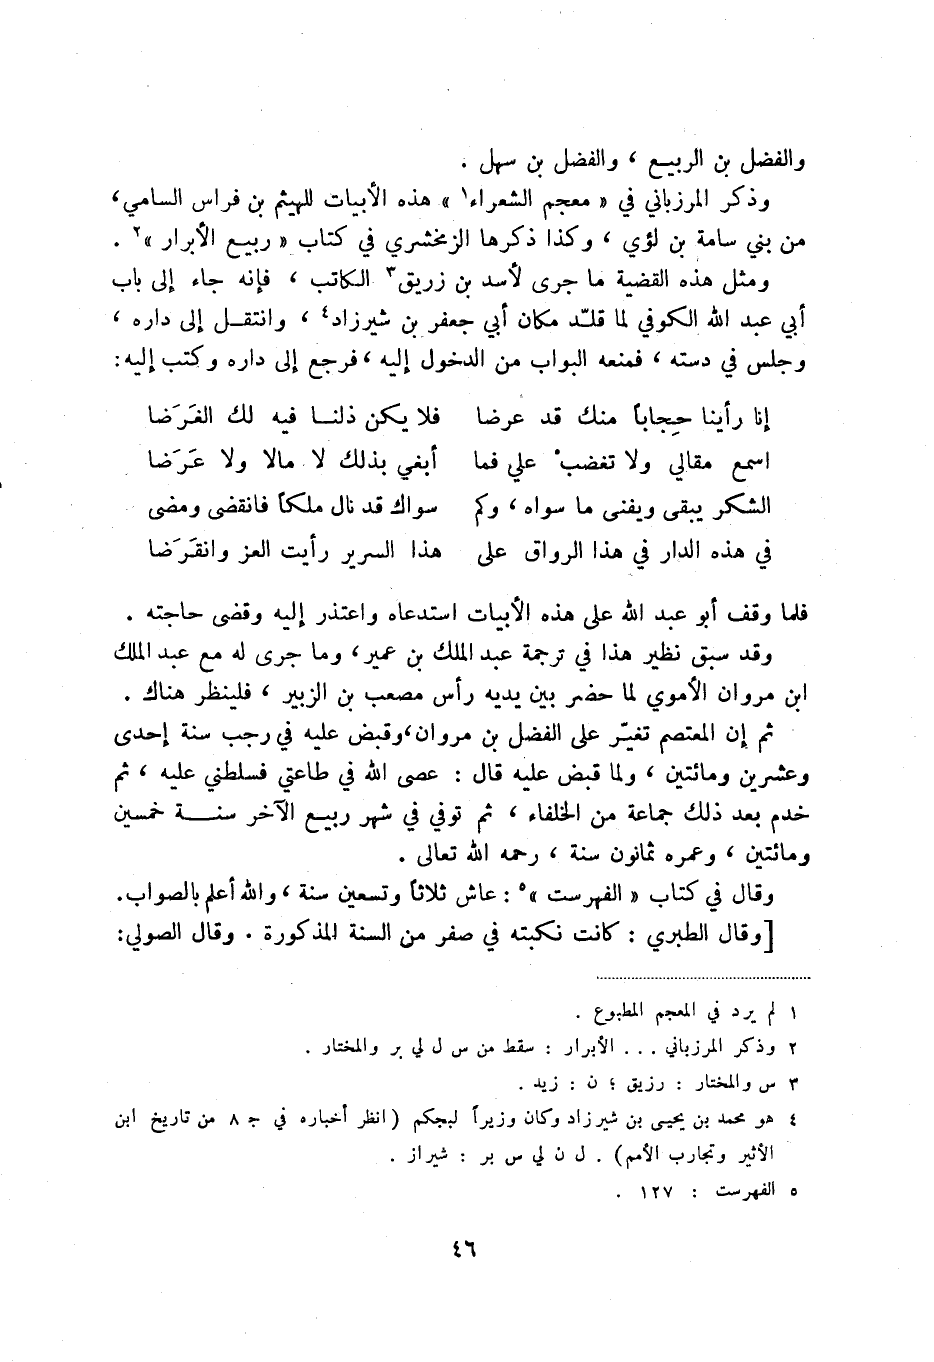 والفضل بن الربيع ، والفضل بن سهل .
وذكر المرزباني في « معجم الشعراء١ » هذه الأبيات للهيثم بن فراس السامي،
من بني سامة بن لؤي ، وكذا ذكرها الزمخشري في كتاب « ربيع الأبرار »٢ .
ومثل هذه القضية ما جرى لأسد بن زريق٣ الكاتب ، فإنه جاء إلى باب
أبي عبد الله الكوفي لما قلّد مكان أبي جعفر بن شيرزاد٤ ، وانتقل إلى داره ،
وجلس في دسته ، فمنعه البواب من الدخول إليه ، فرجع إلى داره وكتب إليه:
إنا رأينا حِجاباً منك قد عرضا فلا يكن ذلنا فيه لك الغَرَضا
اسمع مقالي ولا تغضبْ علي فما أبغي بذلك لا مالا ولا عَرَضا
الشكر يبقى ويفنى ما سواه ، وكم سواك قد نال ملكاً فانقضى ومضى
في هذه الدار في هذا الرواق على هذا السرير رأيت العز وانقَرَضا
فلما وقف أبو عبد الله على هذه الأبيات استدعاه واعتذر إليه وقضى حاجته .
وقد سبق نظير هذا في ترجمة عبد الملك بن عمير، وما جرى له مع عبد الملك
ابن مروان الأموي لما حضر بين يديه رأس مصعب بن الزبير ، فلينظر هناك .
ثم إن المعتصم تغيّر على الفضل بن مروان،وقبض عليه في رجب سنة إحدى
وعشرين ومائتين ، ولما قبض عليه قال : عصى الله في طاعتي فسلطني عليه ، ثم
خدم بعد ذلك جماعة من الخلفاء ، ثم توفي في شهر ربيع الآخر سنة خمسين
ومائتين ، وعمره ثمانون سنة ، رحمه الله تعالى .
وقال في كتاب « الفهرست »٥ : عاش ثلاثاً وتسعين سنة ، والله أعلم بالصواب.
[وقال الطبري : كانت نكبته في صفر من السنة المذكورة . وقال الصولي:
١ لم يرد في المعجم المطبوع .
٢ وذكر المرزباني ... الأبرار : سقط من س ل لي بر والمختار .
٣ س والمختار : رزيق ؛ ن : زيد .
٤ هو محمد بن يحيى بن شيرزاد وكان وزيراً لبجكم (انظر أخباره في ج ٨ من تاريخ ابن
الأثير وتجارب الأمم) . ل ن لي س بر : شيراز .
٥ الفهرست : ١٢٧ .
٤٦